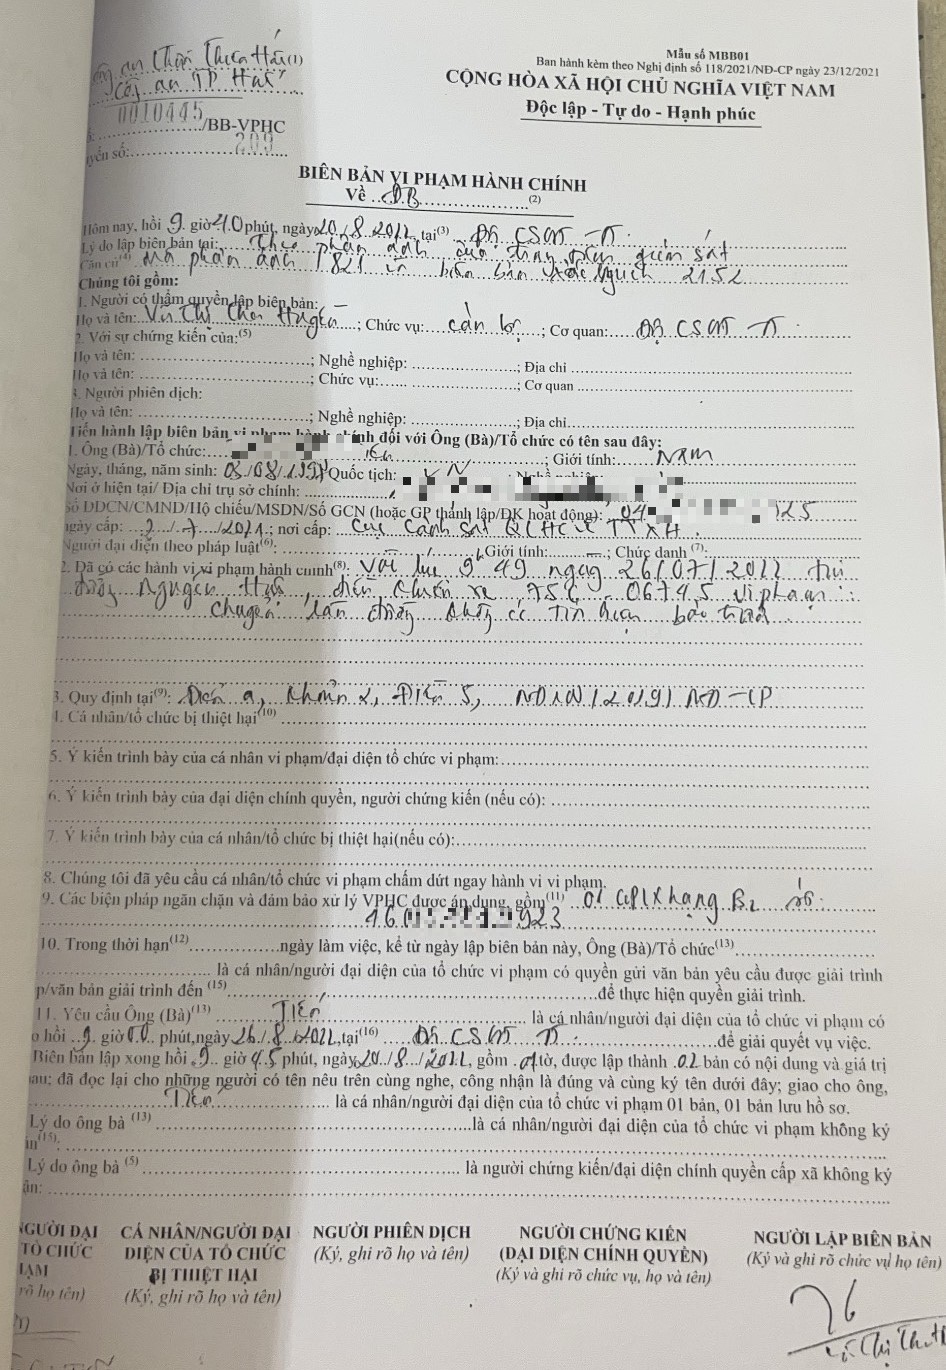 Mẫu số MBB01
Ban hành kèm theo Nghị định số 118/2021/NĐ-CP ngày 23/12/2021
an Thừa
CỘNG HÒA XÃ HỘI CHỦ NGHĨA VIỆT NAM
an TP Huế
Độc lập - Tự do - Hạnh phúc
0010445
/BB-VPHC
số: 209
BIÊN BẢN VI PHẠM HÀNH CHÍNH
Về ĐB (2)
Hôm nay, hồi 9 giờ 40 phút, ngày 20/8/2022, tại(3) Đội CSGT - TT
Lý do lập biên bản tại: Theo phản ánh của giám sát
Căn cứ(4) Mã phản ánh 1821 biên bản 2152
Chúng tôi gồm:
1. Người có thẩm quyền lập biên bản:
Họ và tên: Thị ; Chức vụ: cán bộ ; Cơ quan: Đội CSGT - TT
2. Với sự chứng kiến của:(5)
Họ và tên: ; Nghề nghiệp: ; Địa chỉ
Họ và tên: ; Chức vụ: ; Cơ quan
3. Người phiên dịch:
Họ và tên: ; Nghề nghiệp: ; Địa chỉ
Tiến hành lập biên bản vi phạm hành chính đối với Ông (Bà)/Tổ chức có tên sau đây:
1. Ông (Bà)/Tổ chức: ; Giới tính: Nam
Ngày, tháng, năm sinh: 05/08/ Quốc tịch: VN
Nơi ở hiện tại/ Địa chỉ trụ sở chính:
Số DDCN/CMND/Hộ chiếu/MSDN/Số GCN (hoặc GP thành lập/ĐK hoạt động): 04 125
ngày cấp: 2/7/2021; nơi cấp: Cục Cảnh sát QLHC về TTXH
Người đại diện theo pháp luật(6): Giới tính: ; Chức danh (7):
2. Đã có các hành vi vi phạm hành chính(8): Vào lúc 9h49 ngày 26/07/2022 tại
đường Nguyễn Huệ, điều khiển xe 75C - 06745 vi phạm:
chuyển làn đường không có tín hiệu báo trước.
3. Quy định tại(9): Điểm a, khoản 2, Điều 5, NĐ100/2019/NĐ-CP
4. Cá nhân/tổ chức bị thiệt hại(10)
5. Ý kiến trình bày của cá nhân vi phạm/đại diện tổ chức vi phạm:
6. Ý kiến trình bày của đại diện chính quyền, người chứng kiến (nếu có):
7. Ý kiến trình bày của cá nhân/tổ chức bị thiệt hại(nếu có):
8. Chúng tôi đã yêu cầu cá nhân/tổ chức vi phạm chấm dứt ngay hành vi vi phạm.
9. Các biện pháp ngăn chặn và đảm bảo xử lý VPHC được áp dụng, gồm(11) 01 GPLX hạng B2 số
160 923
10. Trong thời hạn(12) ngày làm việc, kể từ ngày lập biên bản này, Ông (Bà)/Tổ chức(13)
là cá nhân/người đại diện của tổ chức vi phạm có quyền gửi văn bản yêu cầu được giải trình
p/văn bản giải trình đến (15) để thực hiện quyền giải trình.
11. Yêu cầu Ông (Bà)(13) Tiến là cá nhân/người đại diện của tổ chức vi phạm có
o hồi 9 giờ 00 phút, ngày 26/8/2022, tại(16) Đội CSGT TT để giải quyết vụ việc.
Biên bản lập xong hồi 9 giờ 45 phút, ngày 20/8/2022, gồm 01 tờ, được lập thành 02 bản có nội dung và giá trị
au; đã đọc lại cho những người có tên nêu trên cùng nghe, công nhận là đúng và cùng ký tên dưới đây; giao cho ông,
Tiến là cá nhân/người đại diện của tổ chức vi phạm 01 bản, 01 bản lưu hồ sơ.
Lý do ông bà (13) là cá nhân/người đại diện của tổ chức vi phạm không ký
ản(15):
Lý do ông bà (5) là người chứng kiến/đại diện chính quyền cấp xã không ký
ản:
NGƯỜI ĐẠI
TỔ CHỨC
HẠM
rõ họ tên)
CÁ NHÂN/NGƯỜI ĐẠI
DIỆN CỦA TỔ CHỨC
BỊ THIỆT HẠI
(Ký, ghi rõ họ và tên)
NGƯỜI PHIÊN DỊCH
(Ký, ghi rõ họ và tên)
NGƯỜI CHỨNG KIẾN
(ĐẠI DIỆN CHÍNH QUYỀN)
(Ký và ghi rõ chức vụ, họ và tên)
NGƯỜI LẬP BIÊN BẢN
(Ký và ghi rõ chức vụ họ tên)